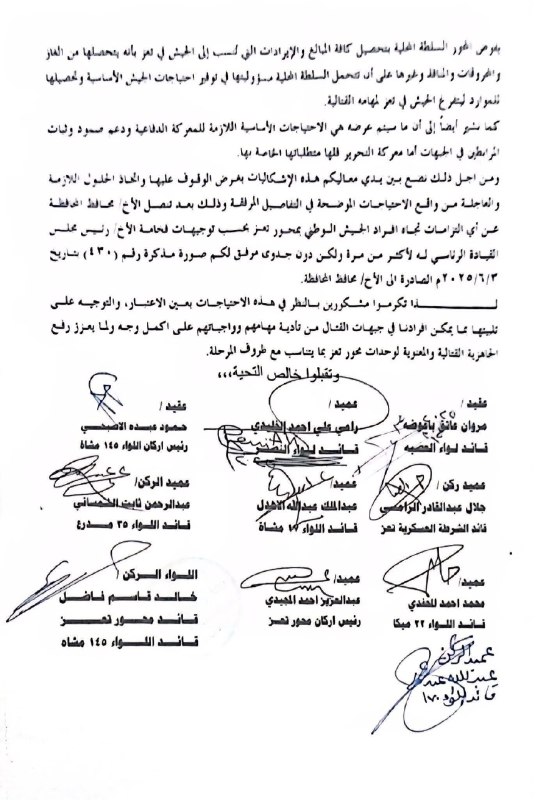 يفوض المحور السلطة المحلية بتحصيل كافة المبالغ والإيرادات التي تنسب إلى الجيش في تعز بأنه يتحصلها من الغاز
والمحروقات والمنافذ وغيرها على أن تتحمل السلطة المحلية مسؤوليتها في توفير احتياجات الجيش الأساسية وتحصيلها
للموارد ليتفرغ الجيش في تعز لمهامه القتالية.
كما نشير أيضاً إلى أن ما سيتم عرضه هي الاحتياجات الأساسية اللازمة للمعركة الدفاعية ودعم صمود وثبات
المرابطين في الجبهات أما معركة التحرير فلها متطلباتها الخاصة بها.
ومن اجل ذلك نضع بين يدي معاليكم هذه الإشكاليات بغرض الوقوف عليها واتخاذ الحلول اللازمة
والعاجلة من واقع الاحتياجات الموضحة في التفاصيل المرفقة وذلك بعد تنصل الأخ/ محافظ المحافظة
عن أي التزامات تجاه افراد الجيش الوطني بمحور تعز بحسب توجيهات فخامة الأخ/ رئيس مجلس
القيادة الرئاسي له لأكثر من مرة ولكن دون جدوى مرفق لكم صورة مذكرة رقم (٤٣٠) بتاريخ
٢٠٢٥/٦/٣م الصادرة الى الأخ/ محافظ المحافظة.
لـــــذا تكرموا مشكورين بالنظر في هذه الاحتياجات بعين الاعتبار، والتوجيه على
تلبيتها مما يمكن افرادنا في جبهات القتال من تأدية مهامهم وواجباتهم على اكمل وجه ولما يعزز رفع
الجاهزية القتالية والمعنوية لوحدات محور تعز بما يتناسب مع ظروف المرحلة.
وتقبلوا خالص التحية،،،
عقيد/ عميد/ عقيد/
مروان عاتق باغوضه رامي علي احمد الخليدي حمود عبده الاصبحي
قائد لواء العصبه قائد لواء النصر رئيس اركان اللواء ١٤٥ مشاة
عميد ركن/ عميد/ عميد الركن/
جلال عبدالقادر عبدالملك عبدالله الاهدل عبدالرحمن ثابت
قائد الشرطة العسكرية تعز قائد اللواء ١٧ مشاة قائد اللواء ٣٥ مدرع
عميد/ عميد/ اللواء الركن/
محمد احمد عبدالعزيز احمد المجيدي خالد قاسم فاضل
قائد اللواء ٢٢ ميكا رئيس اركان محور تعز قائد محور تعز
قائد اللواء ١٤٥ مشاه
عميد الركن
قائد اللواء ١٧٠